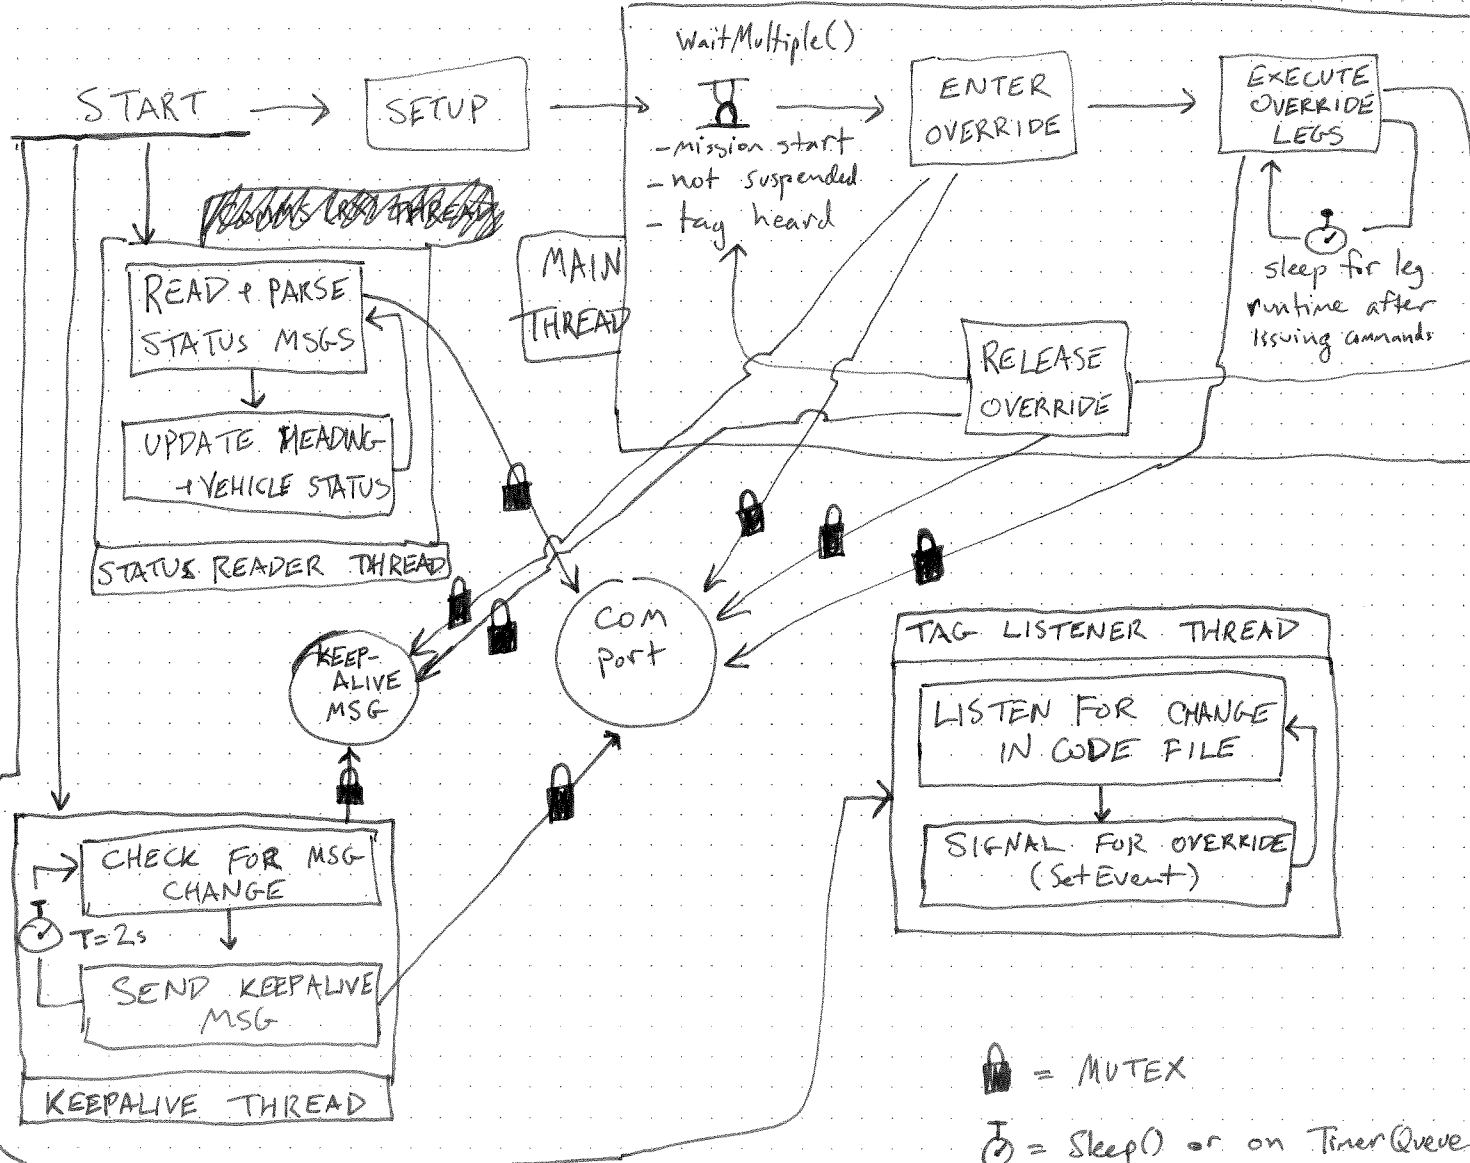 START
SETUP
WaitMultiple()
- mission start
- not suspended
- tag heard
ENTER
OVERRIDE
EXECUTE
OVERRIDE
LEGS
sleep for leg
runtime after
issuing commands
MAIN
THREAD
RELEASE
OVERRIDE
COMMS RX THREAD
READ + PARSE
STATUS MSGS
UPDATE HEADING
+ VEHICLE STATUS
STATUS READER THREAD
KEEP-
ALIVE
MSG
COM
port
TAG LISTENER THREAD
LISTEN FOR CHANGE
IN CODE FILE
SIGNAL FOR OVERRIDE
(SetEvent)
CHECK FOR MSG
CHANGE
T=2s
SEND KEEPALIVE
MSG
KEEPALIVE THREAD
= MUTEX
= Sleep() or on TimerQueue